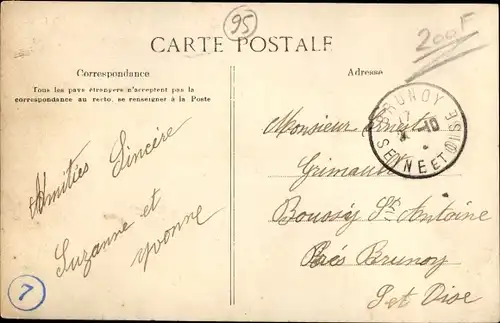 95
200F
CARTE POSTALE
Correspondance
Tous les pays étrangers n'acceptent pas la
correspondance au recto, se renseigner à la Poste
Adresse
BRUNOY
17
10
SEINE ET OISE
Amitiés Sincère
Suzanne et
yvonne
Monsieur Ernest
Grimault
Boussy St Antoine
Près Brunoy
S et Oise
7